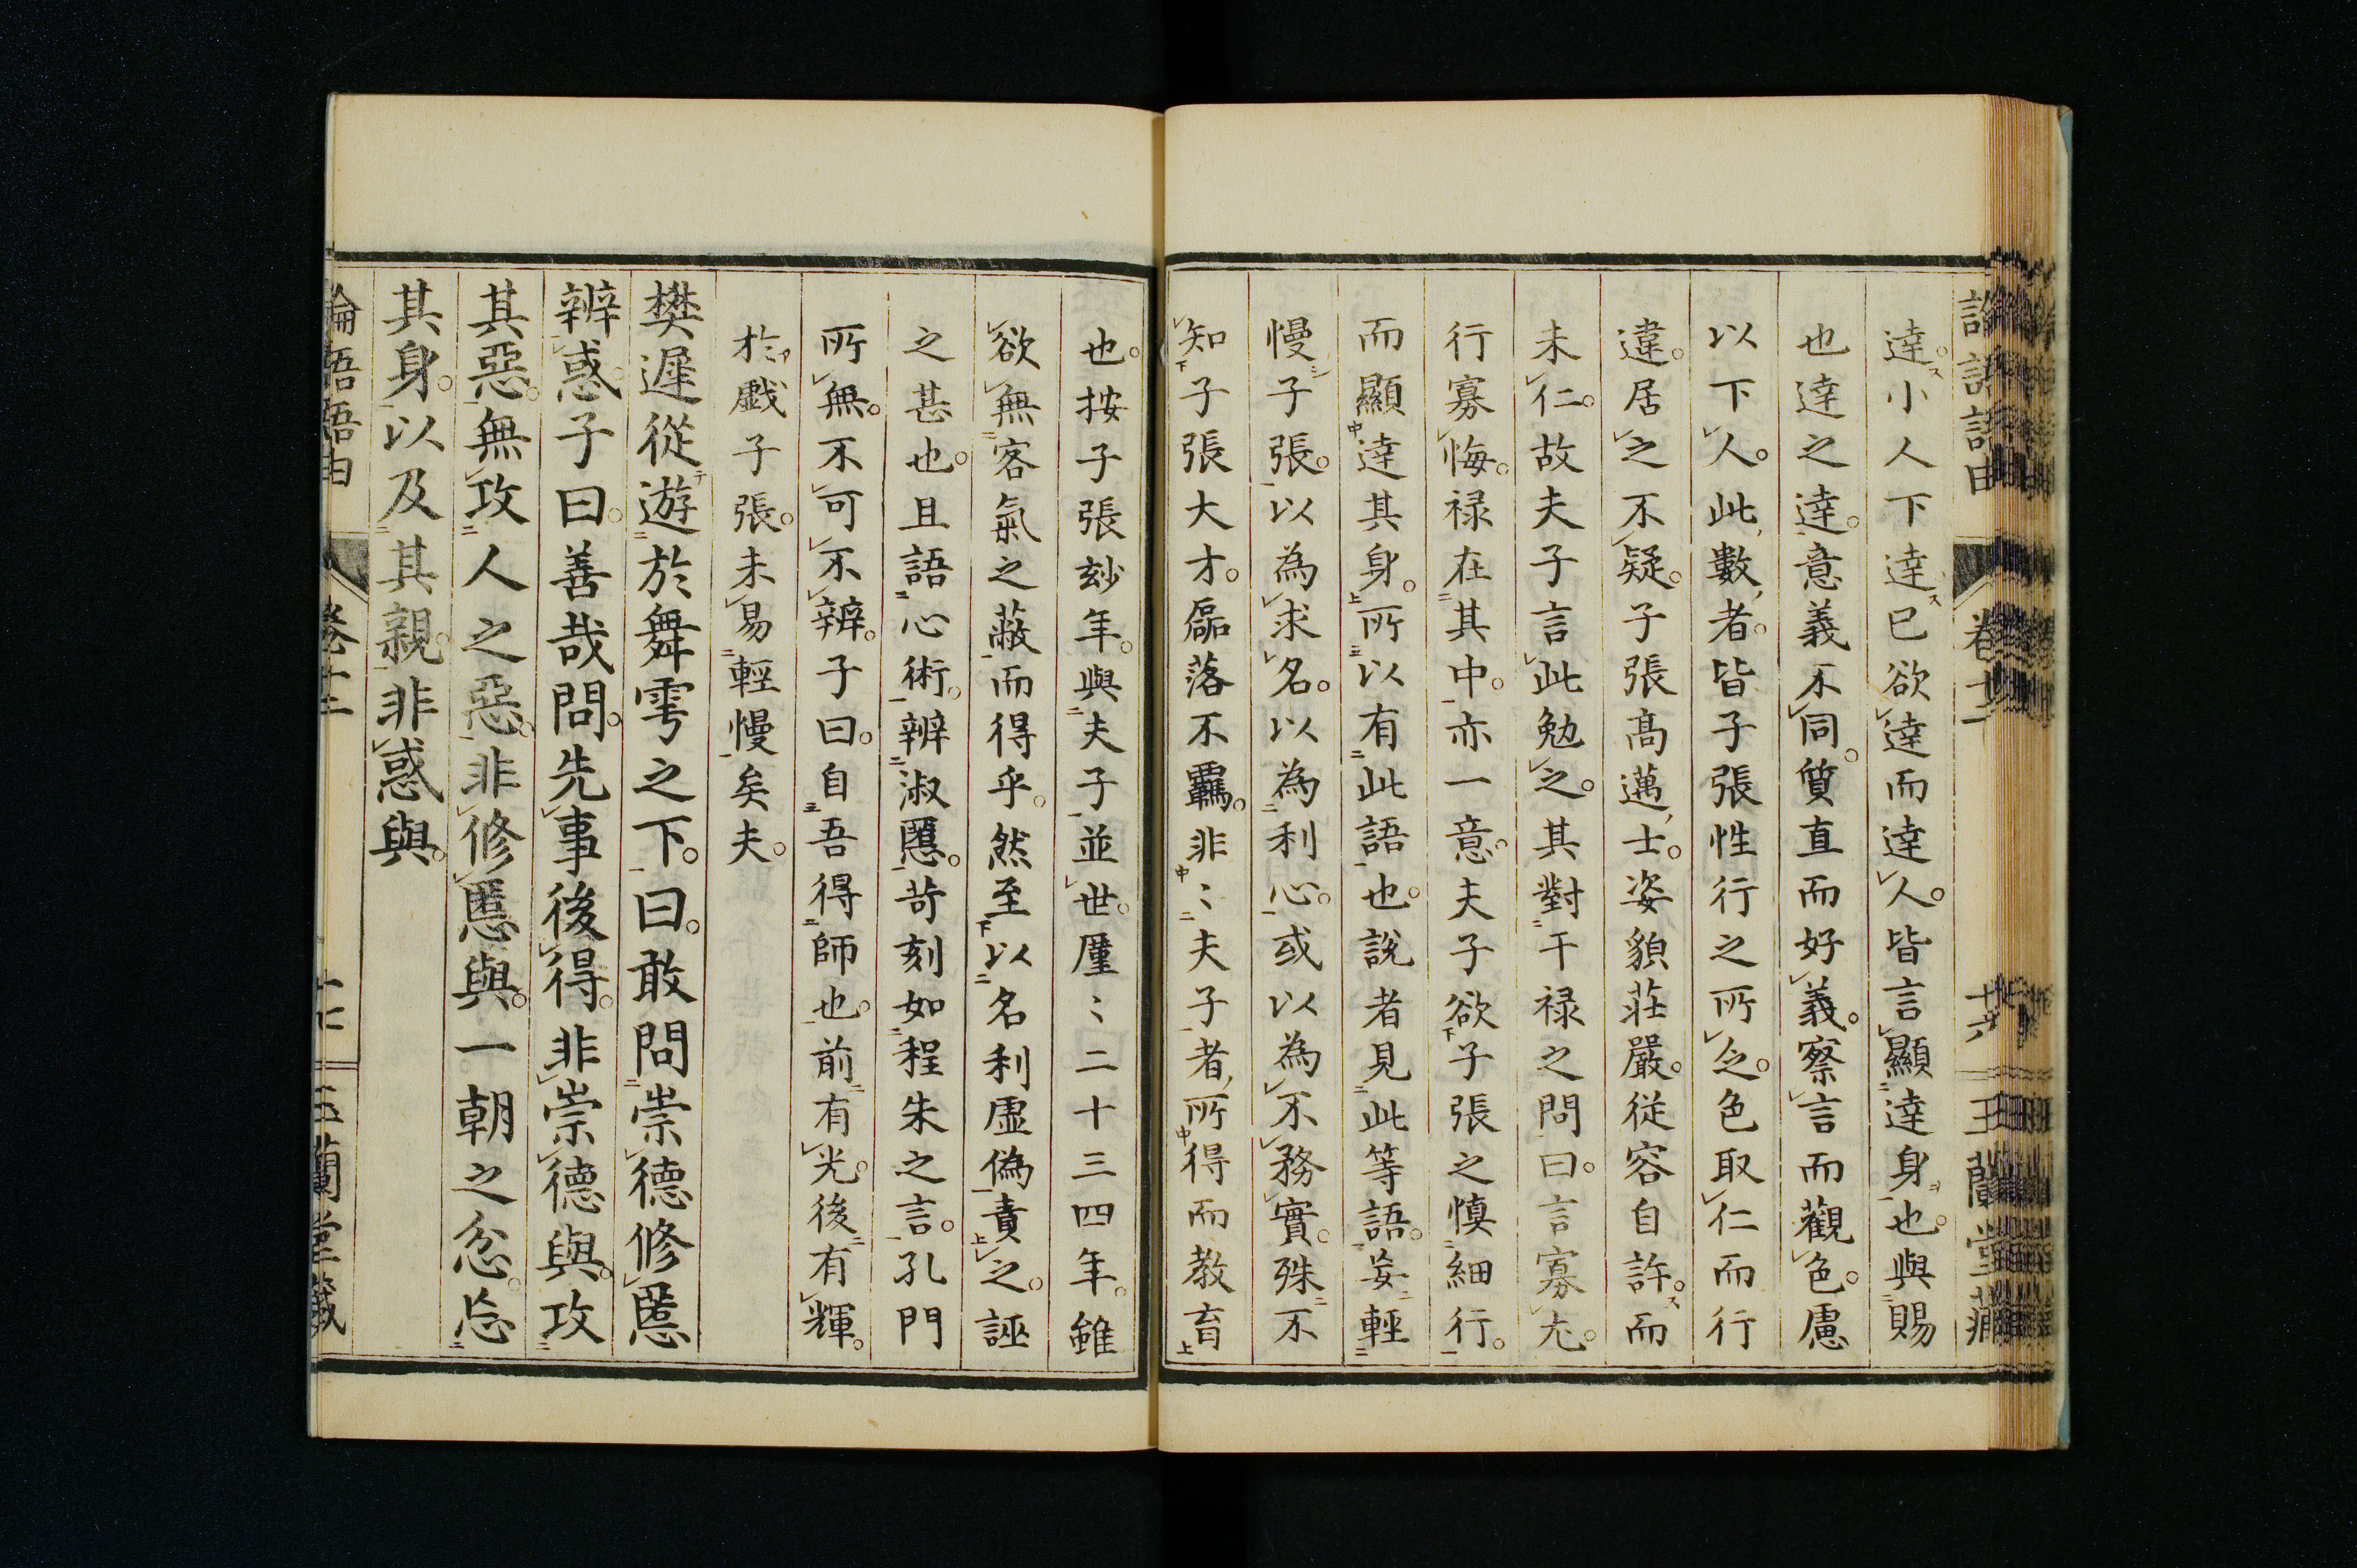 達小人下達已欲達而達人皆言顯達身也與賜
也達之達意義不同質直而好義察言而觀色慮
以下人此數者皆子張性行之所乏色取仁而行
違居之不疑子張高邁士姿貌莊嚴從容自許而
未仁故夫子言此勉之其對干祿之問曰言寡尤
行寡悔祿在其中亦一意夫子欲子張之慎細行
而顯達其身所以有此語也說者見此等語妄輕
慢子張以為求名以為利心或以為不務實殊不
知子張大才磊落不羈非〻夫子者所得而教育
也按子張玅年與夫子並世廑〻二十三四年雖
欲無客氣之蔽而得乎然至以名利虛偽責之誣
之甚也且語心術辨淑慝苛刻如程朱之言孔門
所無不可不辨子曰自吾得師也前有光後有輝
於戲子張未易輕慢矣夫
樊遲從遊於舞雩之下曰敢問崇德修慝
辨惑子曰善哉問先事後得非崇德與攻
其惡無攻人之惡非修慝與一朝之忿忘
其身以及其親非惑與
論語語由 卷十二